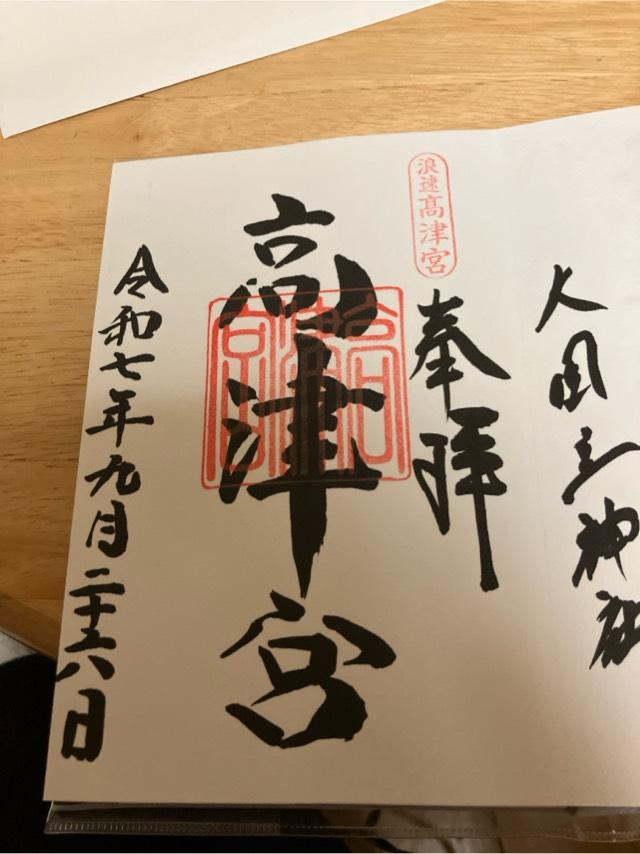 大国主神社
浪速高津宮
奉拝
高津宮
高津宮
令和七年九月二十六日